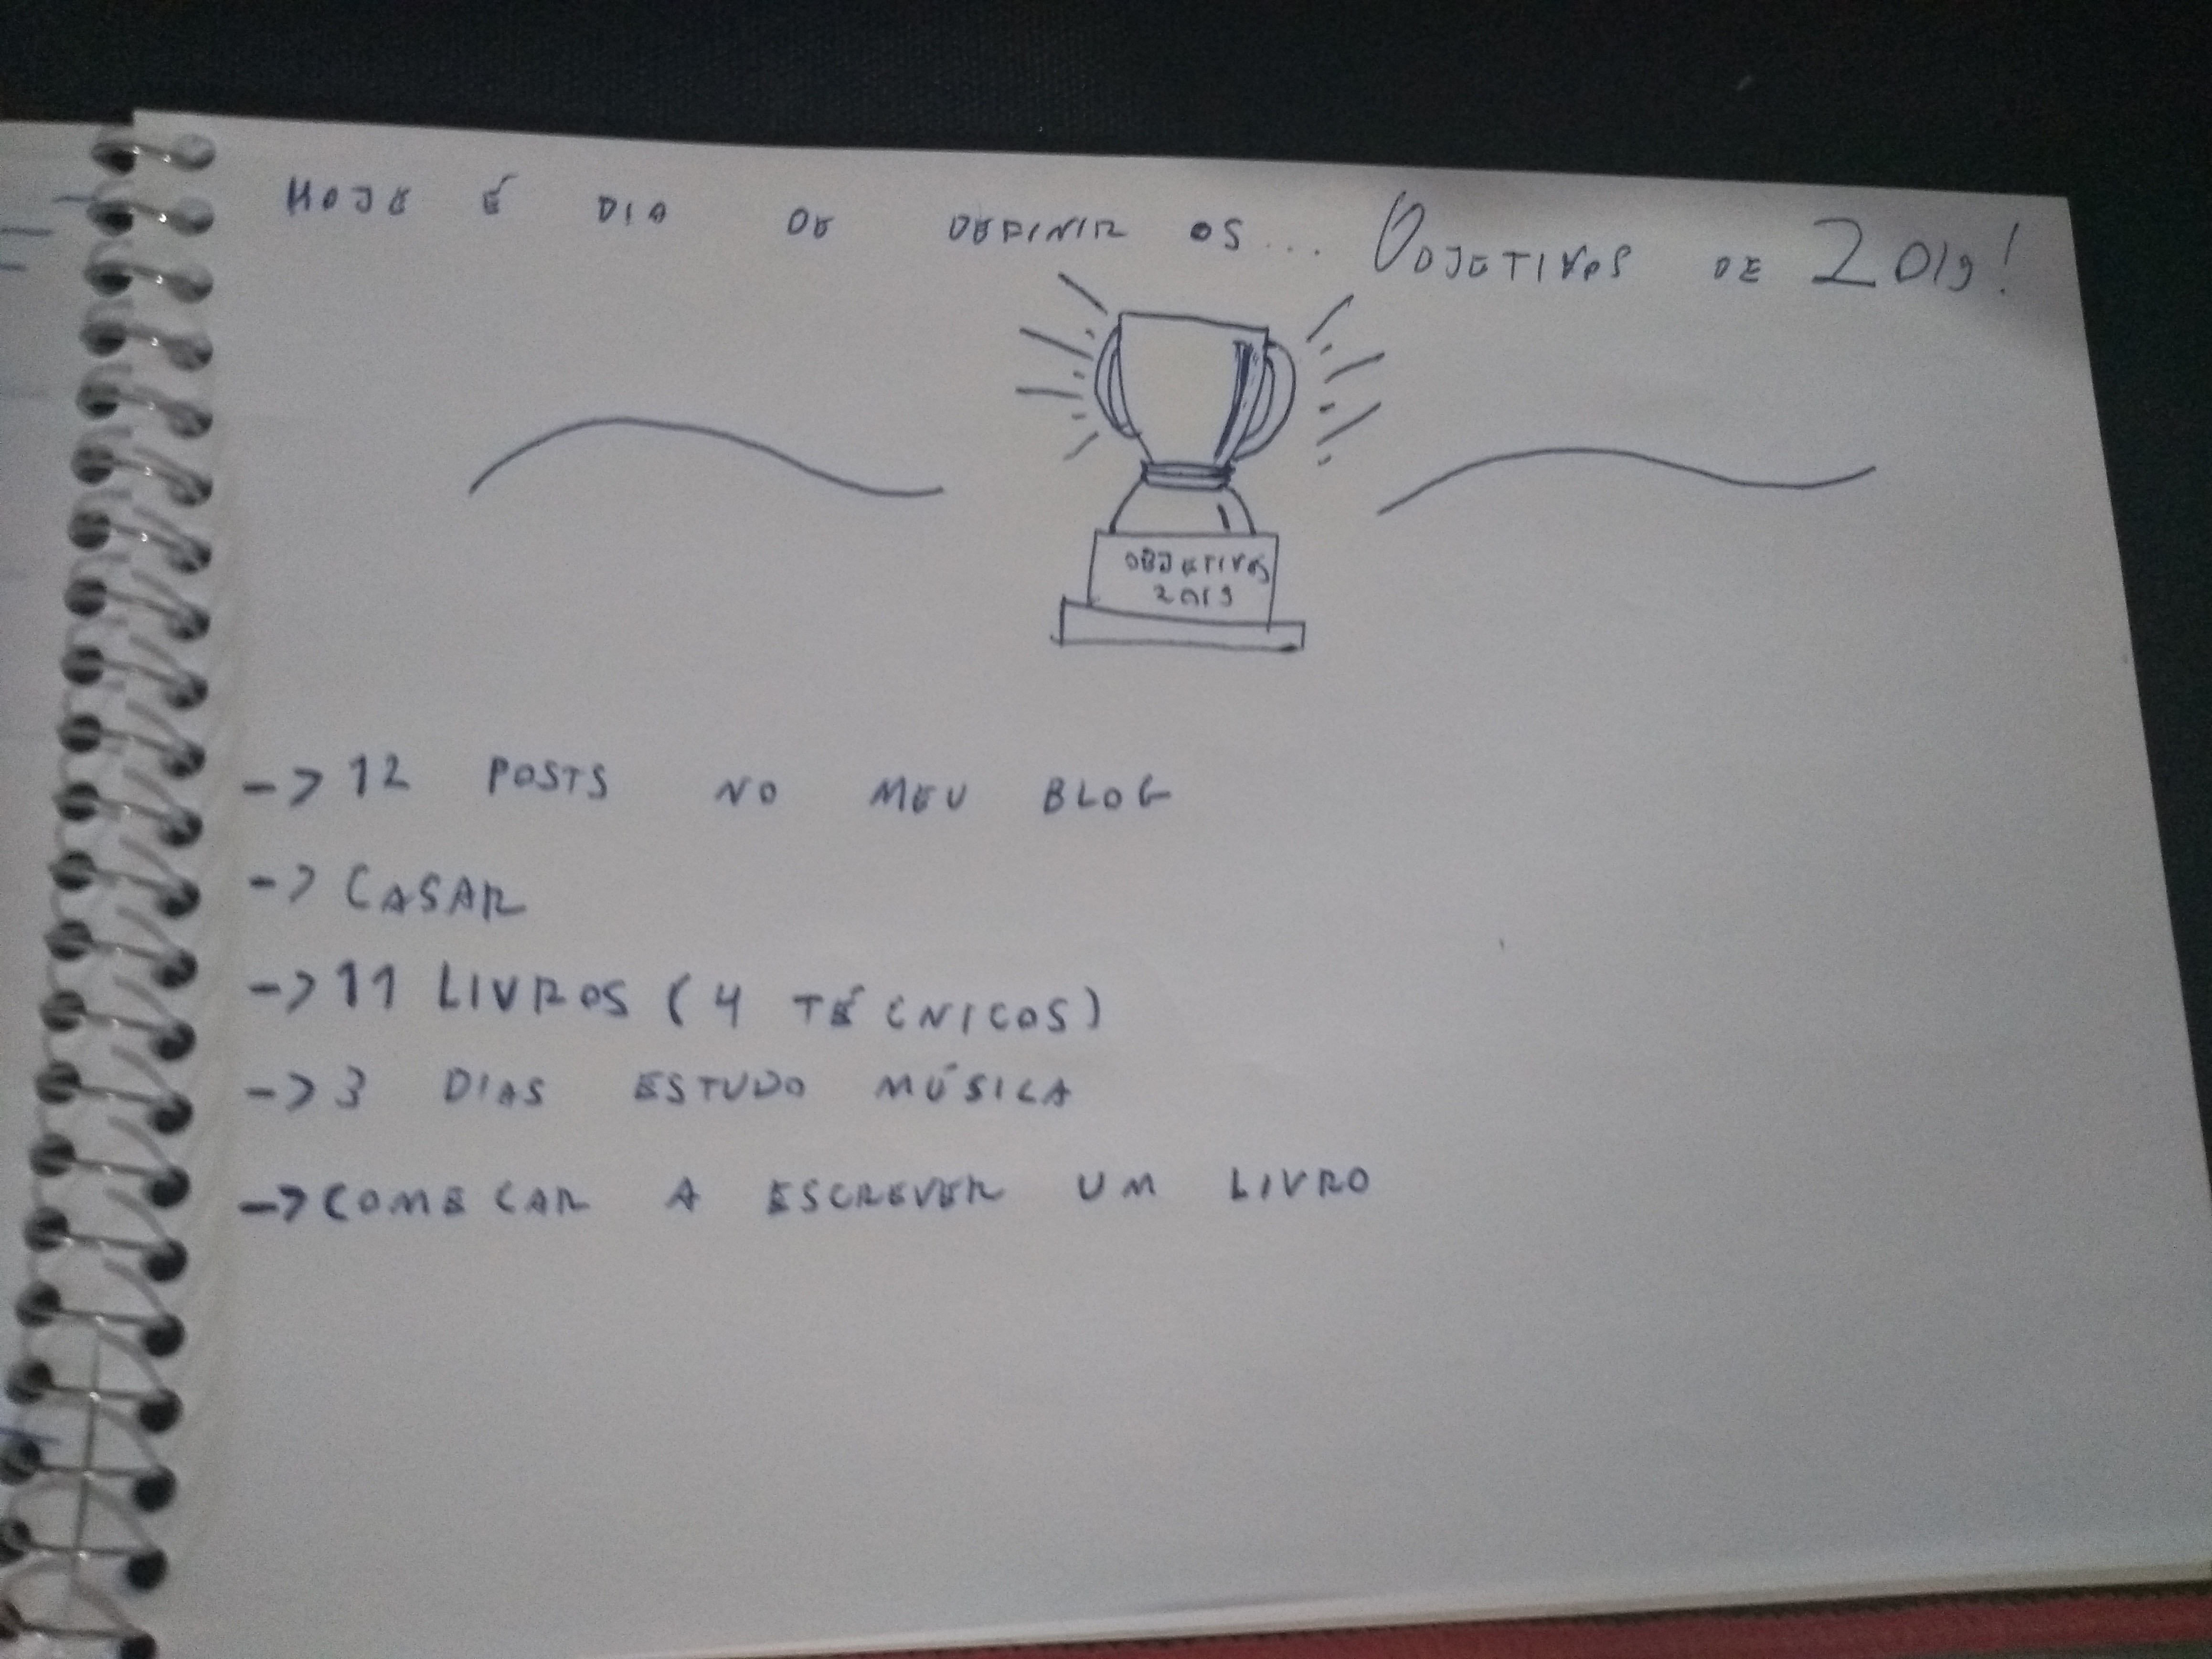 HOJE É DIA DE DEFINIR OS... OBJETIVOS DE 2019!
OBJETIVOS
2019
-> 12 POSTS NO MEU BLOG
-> CASAR
-> 11 LIVROS (4 TÉCNICOS)
-> 3 DIAS ESTUDO MÚSICA
-> COMECAR A ESCREVER UM LIVRO